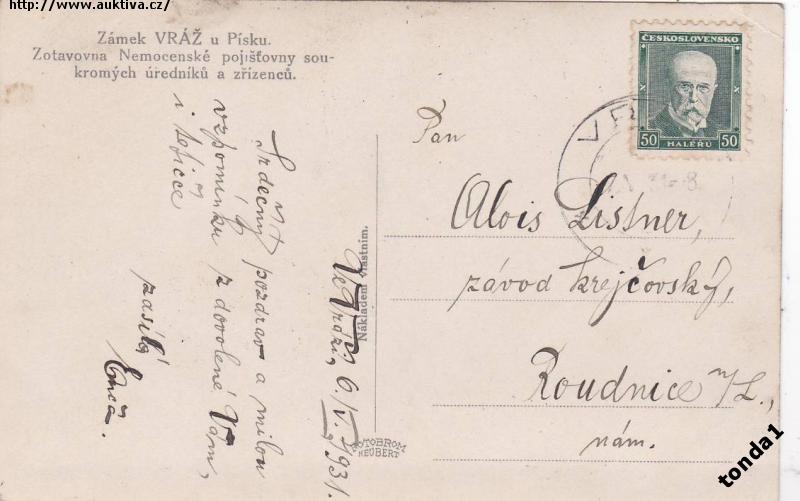 http://www.auktiva.cz/
Zámek VRÁŽ u Písku.
Zotavovna Nemocenské pojišťovny sou-
kromých úředníků a zřízenců.
ČESKOSLOVENSKO
50 HALÉŘŮ 50
Ve Vráži, 6/V. 1931.
Srdečný pozdrav a milou
vzpomínku z dovolené Vám,
i
zasílá
Nákladem vlastním.
FOTOBROM
NEUBERT
Pan
Alois Listner,
závod krejčovský,
Roudnice n/L.,
nám.
tonda1